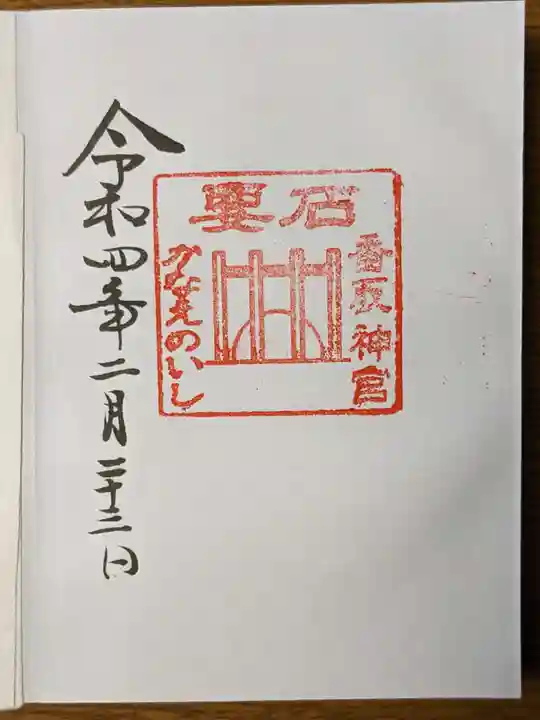 要石
香取神宮
かなめのいし
令和四年二月二十三日